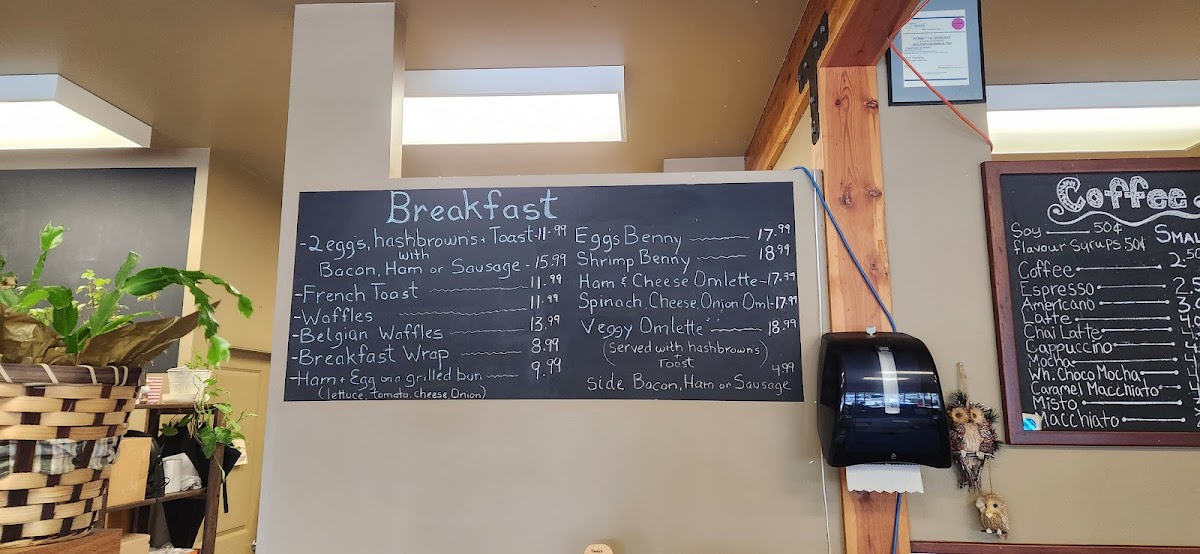 Breakfast
-2 egg's, hashbrown's + Toast-11.99
with
Bacon, Ham or Sausage - 15.99
-French Toast 11.99
-Waffles 11.99
-Belgian Waffles 13.99
-Breakfast Wrap 8.99
-Ham + Egg on a grilled bun 9.99
(lettuce, tomato, cheese Onion)
Egg's Benny 17.99
Shrimp Benny 18.99
Ham & Cheese Omlette-17.99
Spinach, Cheese Onion Oml-17.99
Veggy Omlette 18.99
(Served with hashbrown's
+
Toast)
4.99
Side Bacon, Ham or Sausage
Coffee
Soy 50¢
flavour Syrups 50¢
Coffee
Espresso
Americano
Latte
Chai Latte
Cappuccino
Mocha
Wh. Choco Mocha
Caramel Macchiato
Misto
Macchiato